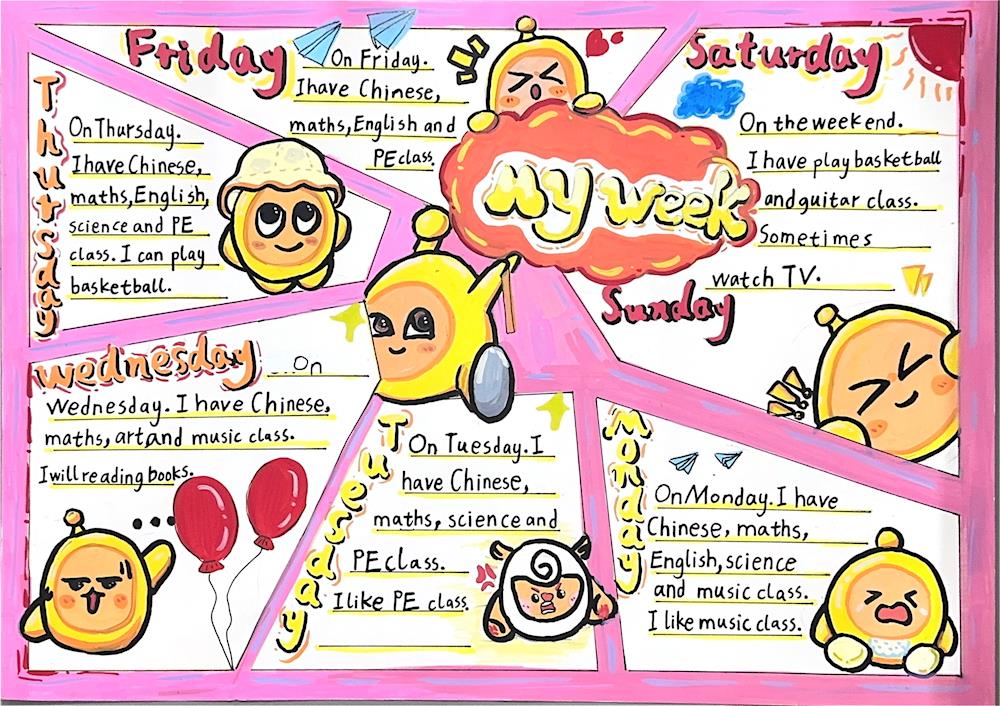 My week
Monday
On Monday. I have
Chinese, maths,
English, science
and music class.
I like music class.
Tuesday
On Tuesday. I
have Chinese,
maths, science and
PE class.
I like PE class.
Wednesday
On
Wednesday. I have Chinese,
maths, art and music class.
I will reading books.
Thursday
On Thursday.
I have Chinese,
maths, English,
science and PE
class. I can play
basketball.
Friday
On Friday.
I have Chinese,
maths, English and
PE class.
Saturday
On the weekend.
I have play basketball
and guitar class.
Sometimes
watch TV.
Sunday